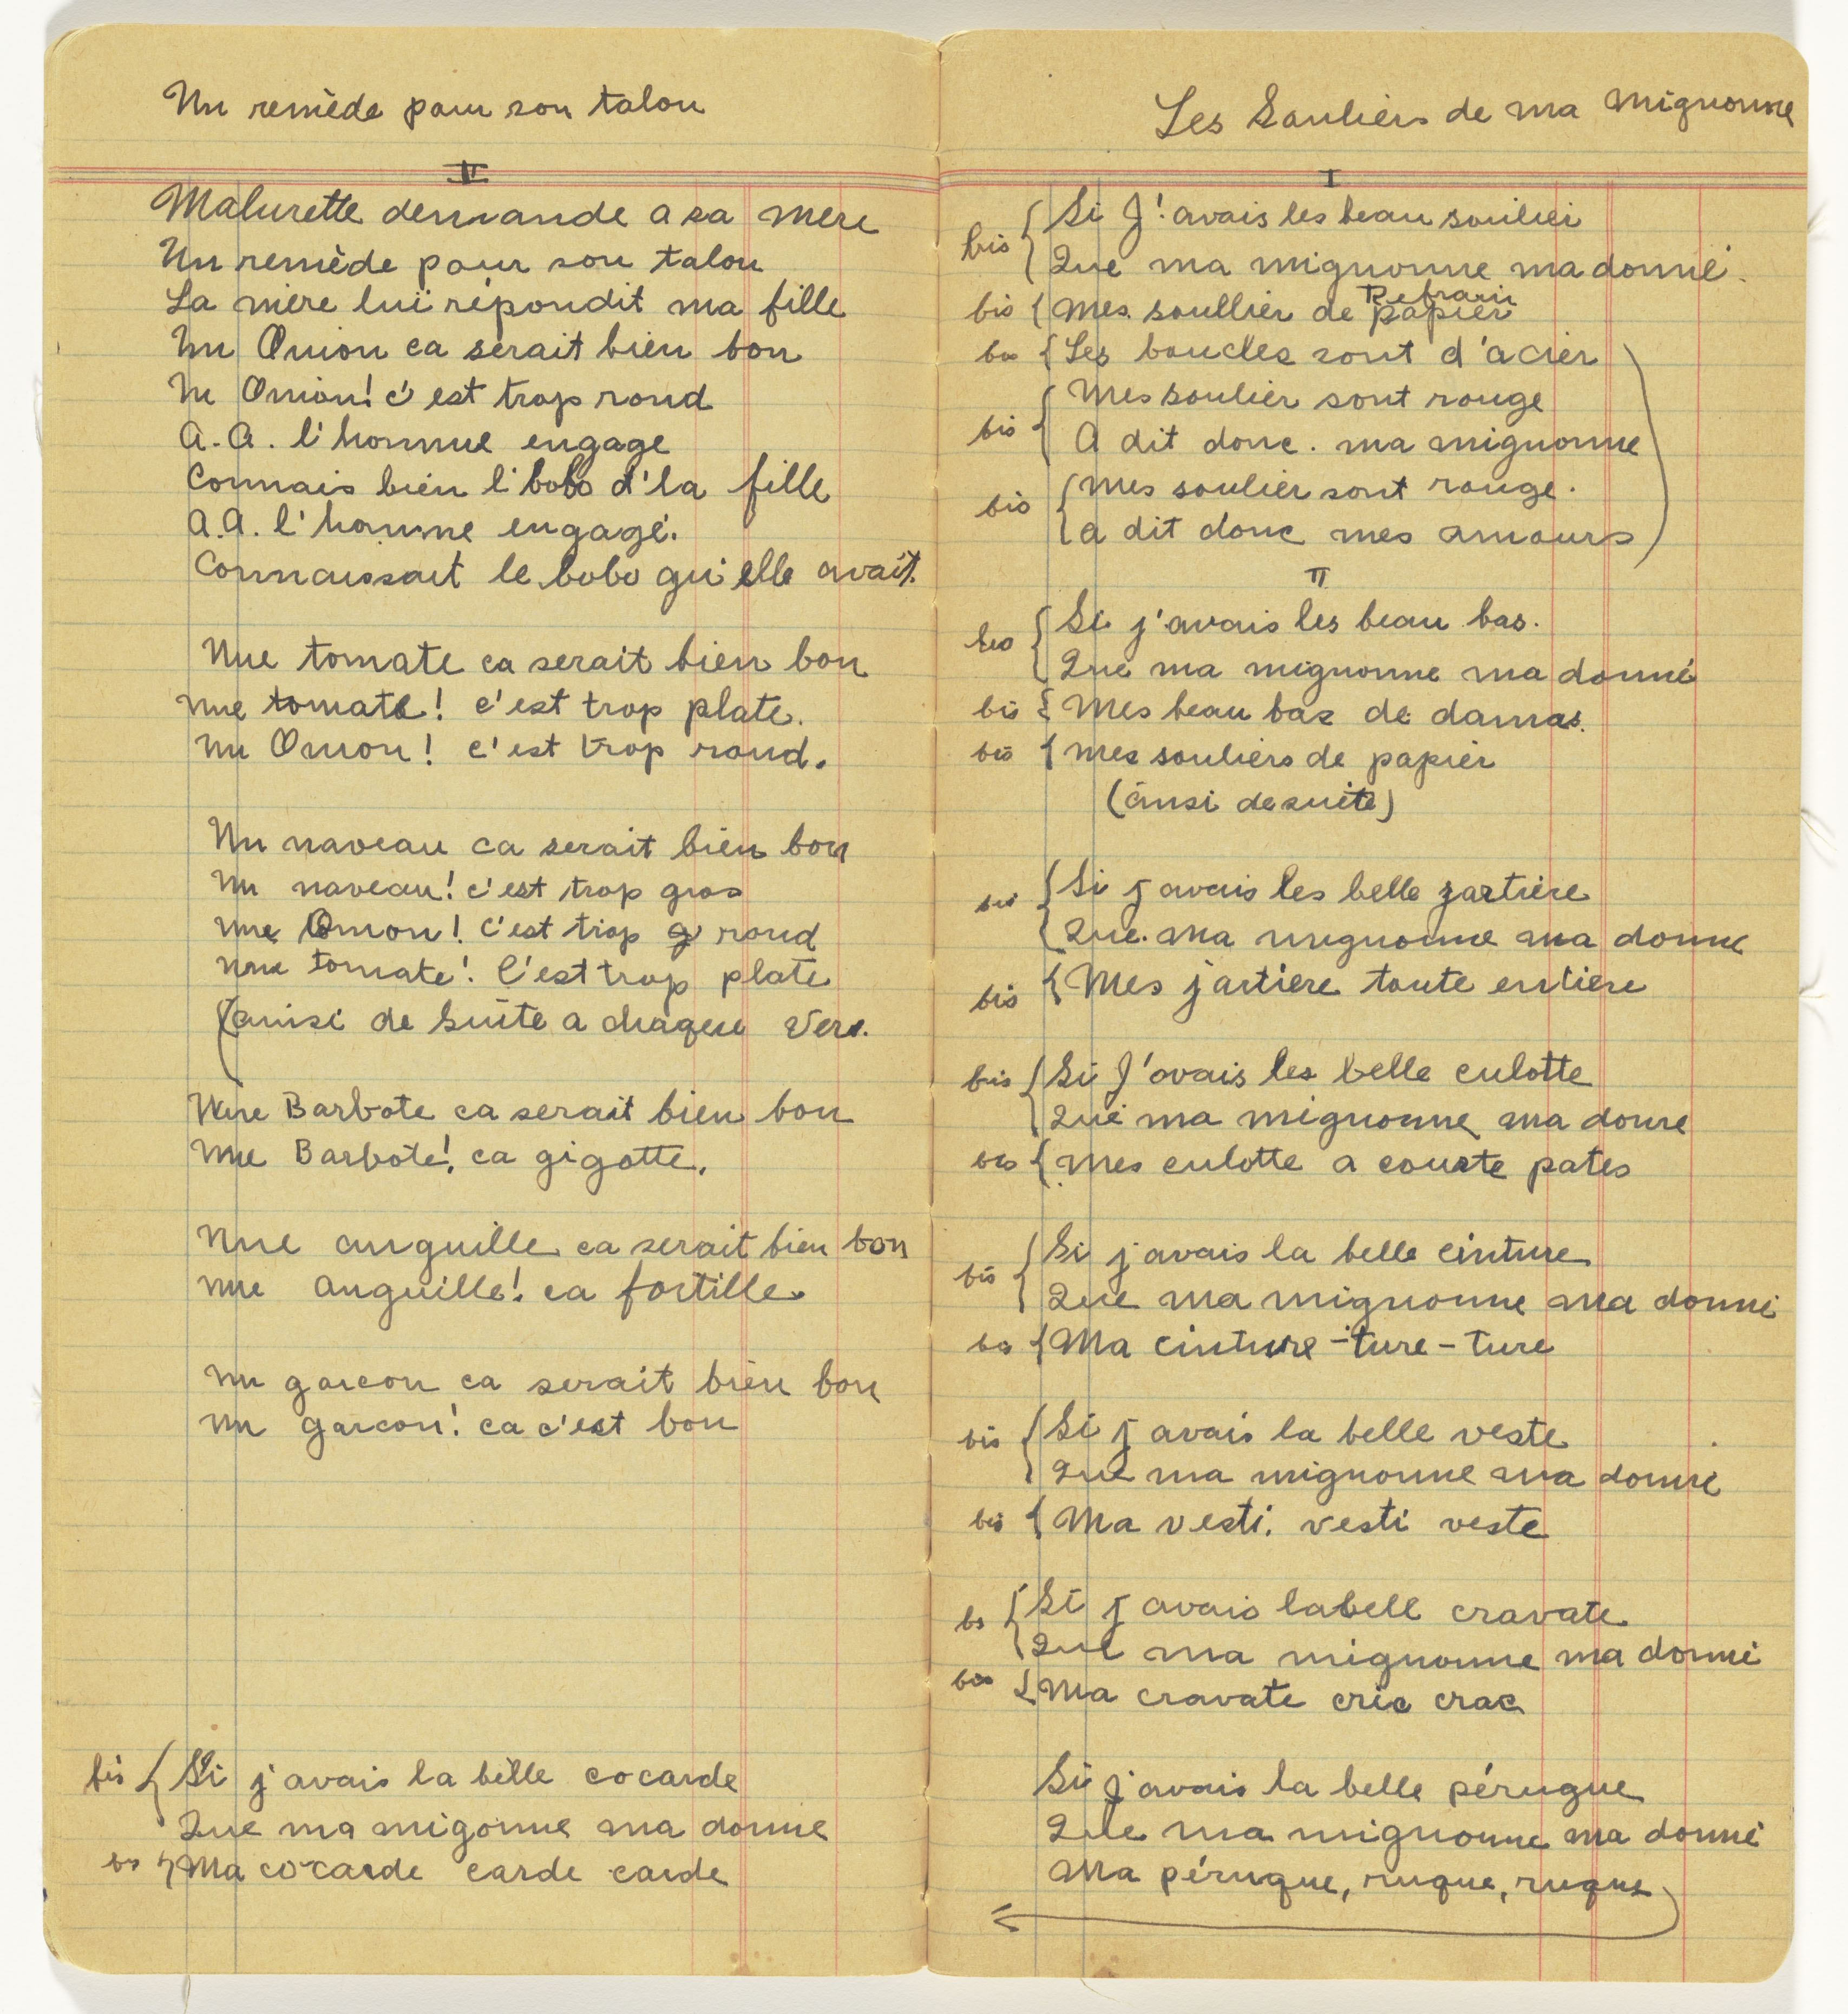 Un remède pour son talon
II
Malurette demande a sa mere
Un remède pour son talon
La mère lui répondit ma fille
Un Onion ca serait bien bon
Un Onion! c'est trop rond
A.A. l'homme engage
Connais bien l'bobo d'la fille
A.A. l'homme engagé.
Connaissait le bobo qu'elle avait.
Une tomate ca serait bien bon
une tomate! c'est trop plate.
un Onion! c'est trop rond.
Un naveau ca serait bien bon
un naveau! c'est trop gros
une Onion! C'est trop rond
une tomate! C'est trop plate
(ainsi de suite a chaque vers.
Une Barbote ca serait bien bon
une Barbote! ca gigotte.
Une anguille ca serait bien bon
une anguille! ca fortille.
un garcon ca serait bien bon
un garcon! ca c'est bon
bis { Si j'avais la belle cocarde
Que ma migonne ma donne
bis { Ma cocarde carde carde
Les Souliers de ma mignonne
I
bis { Si J'avais les beau soulier
Que ma mignonne ma donné.
Refrain
bis { Mes soullier de papier
bis { Les boucles sont d'acier
bis { Mes soulier sont rouge
A dit donc. ma mignonne
bis { Mes soulier sont rouge.
a dit donc mes amours
II
bis { Si j'avais les beau bas.
Que ma mignonne ma donné
bis { Mes beau bas de damas.
bis { mes souliers de papier
(ainsi de suite)
bis { Si j'avais les belle jartière
Que ma mignonne ma donne
bis { Mes jartière toute entière
bis { Si J'avais les belle culotte
Que ma mignonne ma donne
bis { mes culotte a courte pates
bis { Si j'avais la belle cinture
Que ma mignonne ma donné
bis { Ma cinture-ture-ture
bis { Si j'avais la belle veste
Que ma mignonne ma donné
bis { Ma vesti, vesti veste
bis { Si j'avais la bell cravate
Que ma mignonne ma donné
bis { Ma cravate cric crac
Si j'avais la belle péruque
Que ma mignonne ma donné
Ma péruque, ruque, ruque